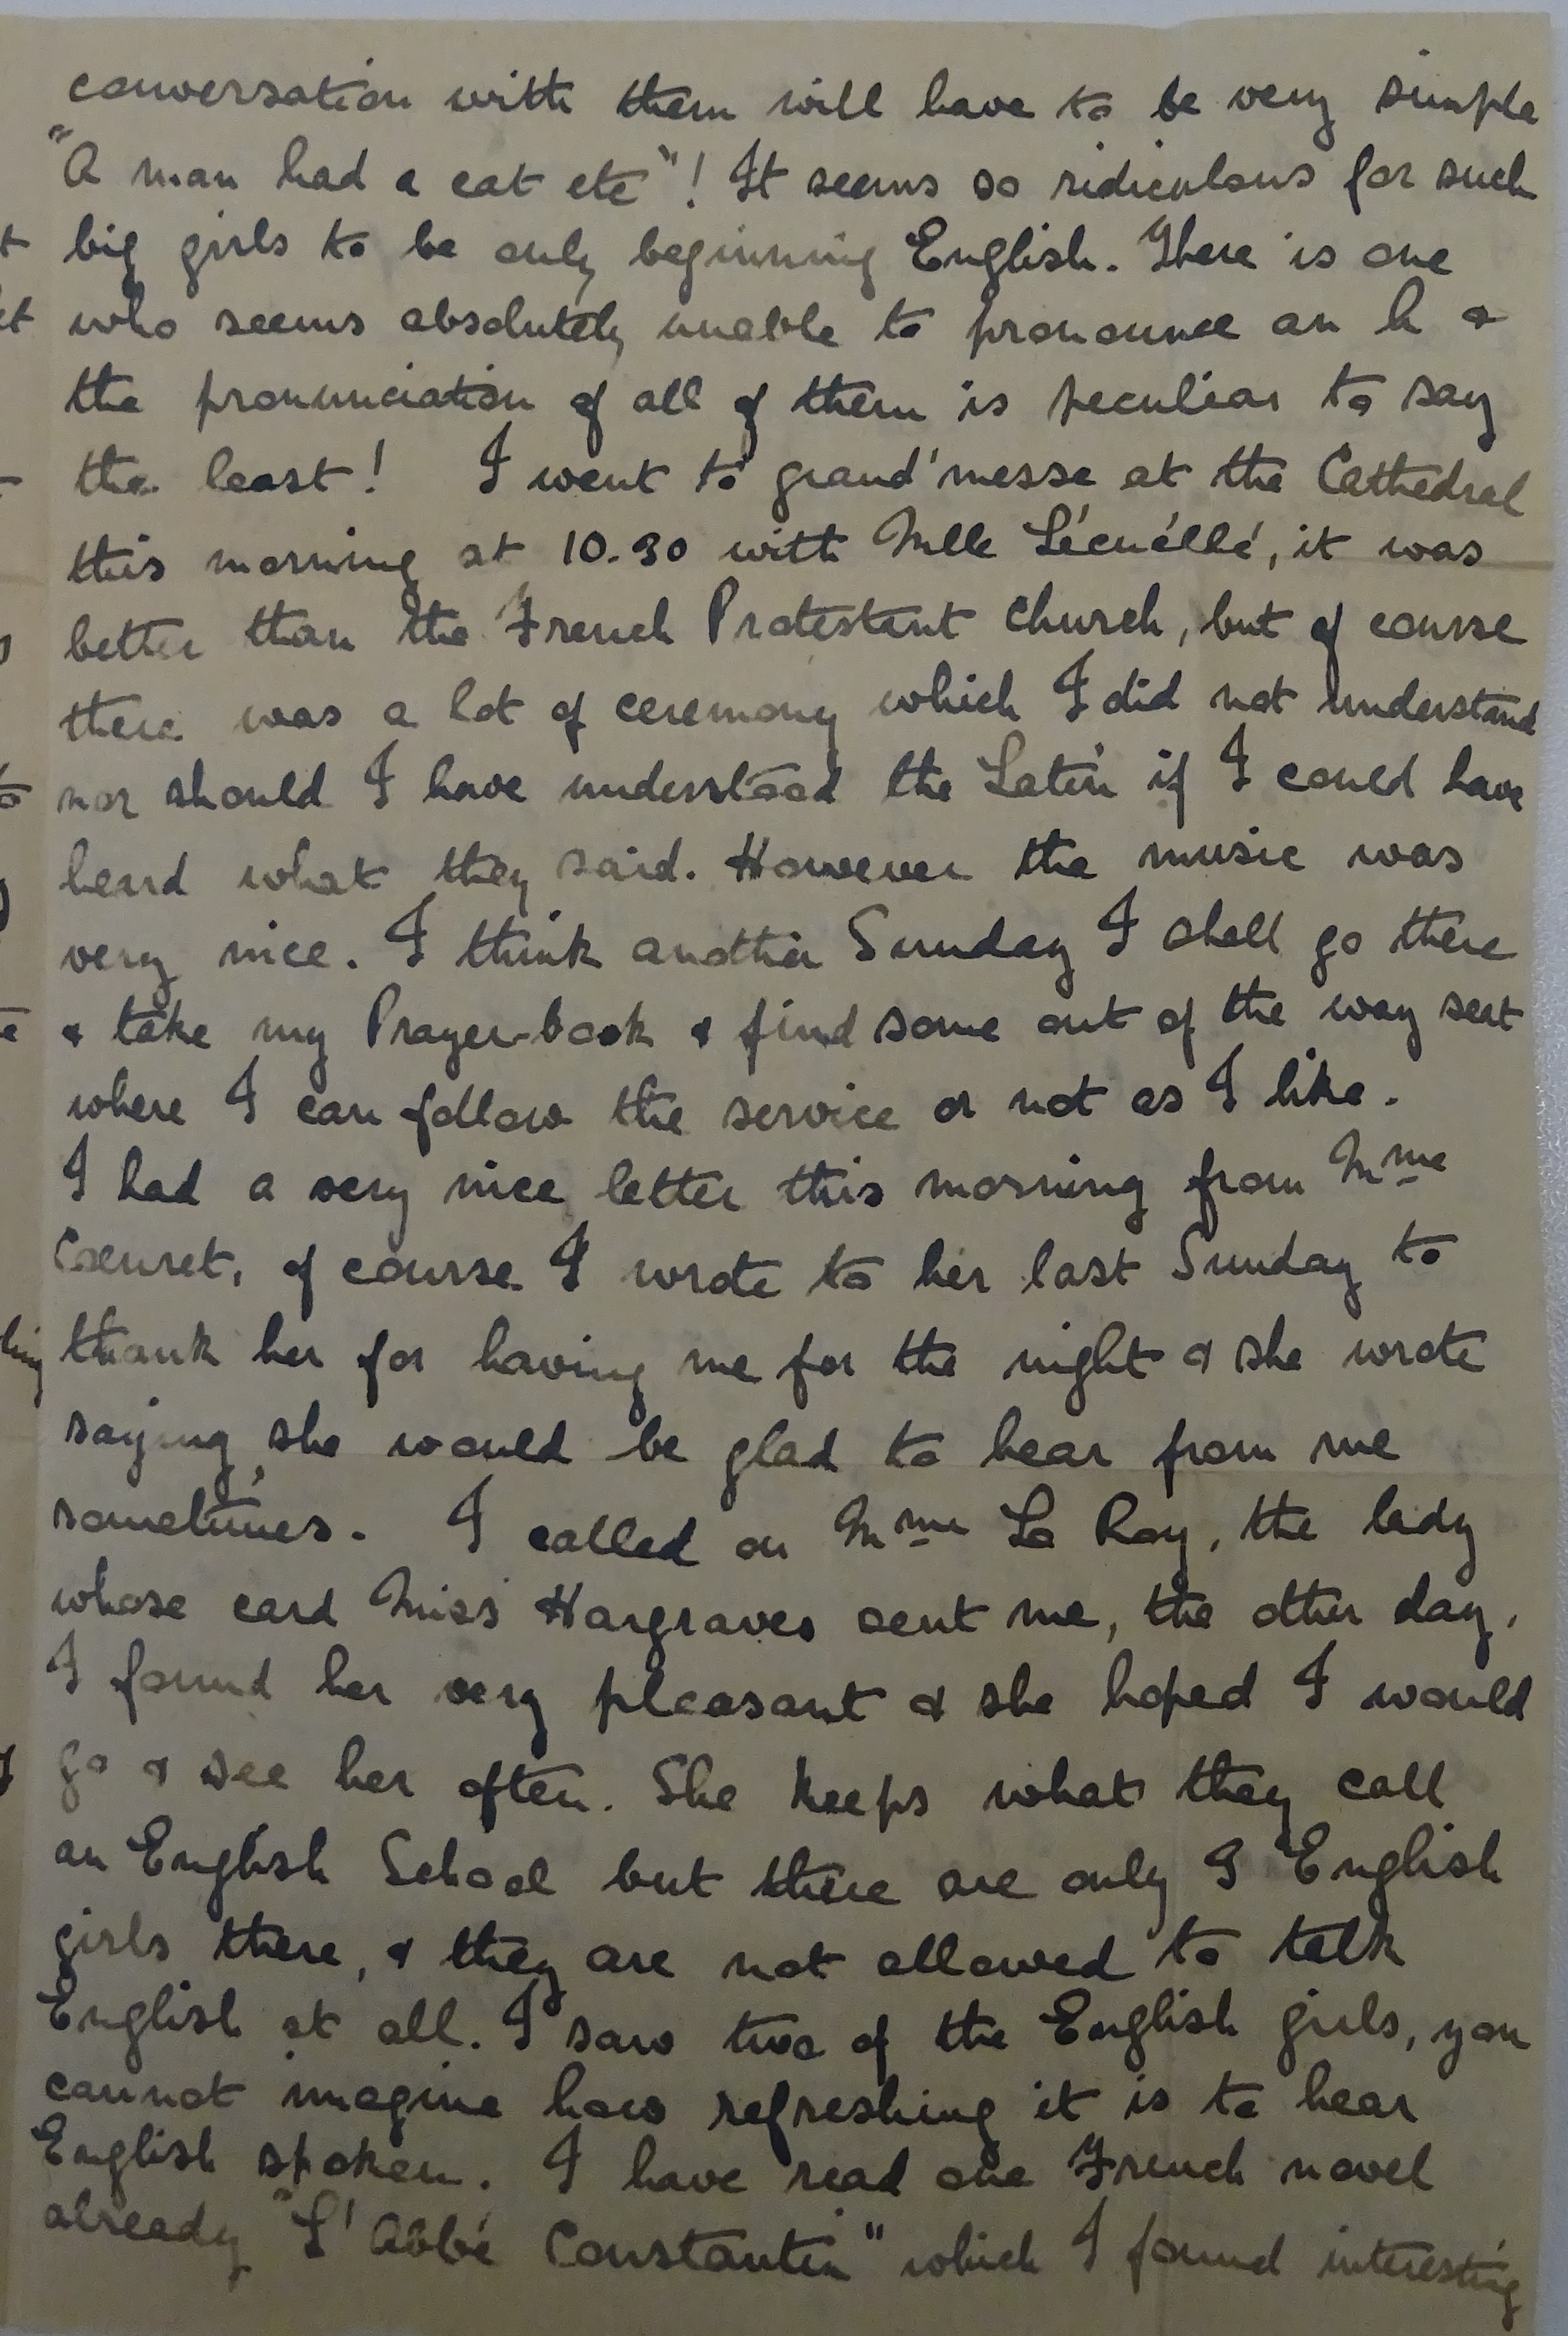 conversation with them will have to be very simple
"A man had a cat etc"! It seems so ridiculous for such
big girls to be only beginning English. There is one
who seems absolutely unable to pronounce an h &
the pronunciation of all of them is peculiar to say
the least! I went to grand'messe at the Cathedral
this morning at 10.30 with Mlle Lécuéllé, it was
better than the French Protestant church, but of course
there was a lot of ceremony which I did not understand
nor should I have understood the Latin if I could have
heard what they said. However the music was
very nice. I think another Sunday I shall go there
& take my Prayer-book & find some out of the way seat
where I can follow the service or not as I like.
I had a very nice letter this morning from Mme
Coeuret, of course I wrote to her last Sunday to
thank her for having me for the night & she wrote
saying she would be glad to hear from me
sometimes. I called on Mme Le Roy, the lady
whose card Miss Hargraves sent me, the other day,
I found her very pleasant & she hoped I would
go & see her often. She keeps what they call
an English School but there are only 9 English
girls there, & they are not allowed to talk
English at all. I saw two of the English girls, you
cannot imagine how refreshing it is to hear
English spoken. I have read one French novel
already "L'Abbé Constantin" which I found interesting